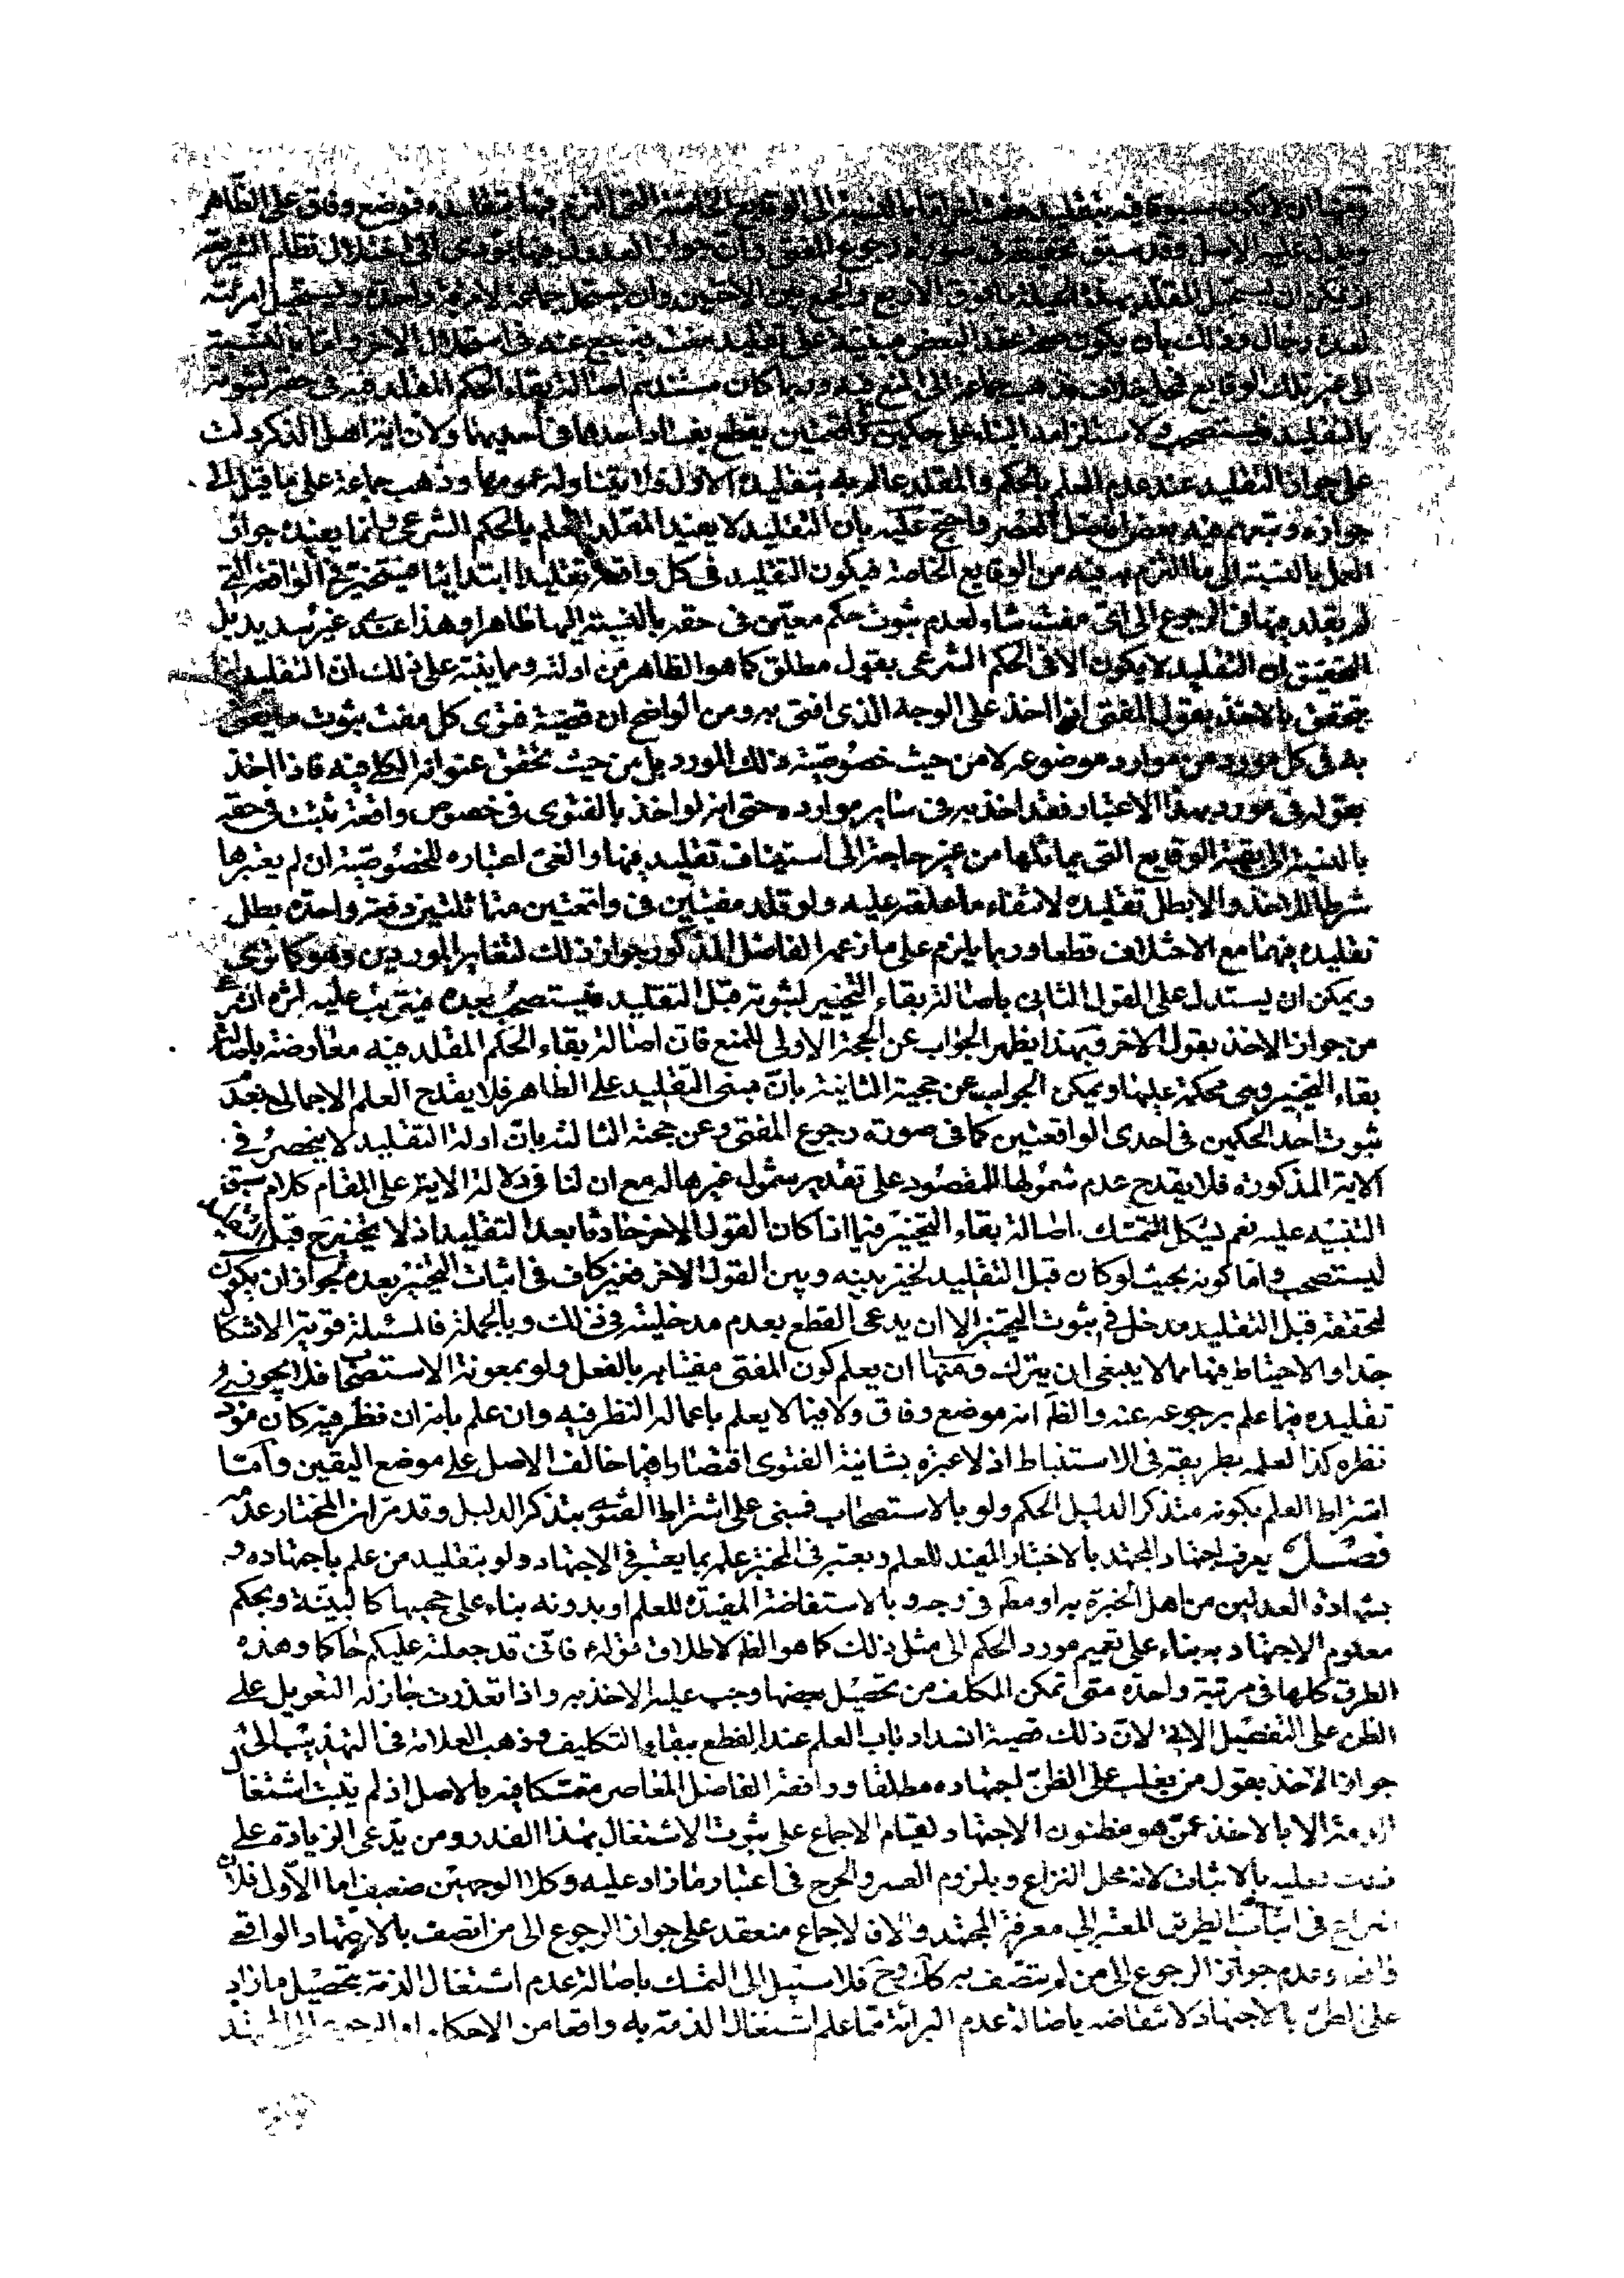 ومنها ان لا يكون مسبوقا فيه بتقليد مفت اخر اما بالنسبة الى الوقايع الخاصة التى التزم فيها بتقليده فموضع وفاق على الظاهر
ويدل عليه الاصل وقد سبق تحقيقه فى صورة رجوع المفتى وان جواز العدول فيها يؤدى الى اختلال نظام الشريعة
اذ يمكن ان يستحيل المقلد بهذه الحيلة ما فوق الاربع والجمع بين الاختين وان يستحل جماعة لامرئة واحدة وتستحيل امرئة
لعدة رجال وذلك بان يكون عقد البعض مبنية على تقليد مفت فيرجع عنه فى استحلال الاخر واما بالنسبة
الى غير تلك الوقايع فمحل خلاف فذهب جماعة الى المنع فيه وربما كان مستندهم اصالة بقاء الحكم المقلد فيه فى حقه لثبوته
بالتقليد فيستصحب ولاستلزامه البناء على حكمين فى واقعتين يقطع بفساد احدهما فى احديهما ولان اية اهل الذكر دلت
على جواز التقليد عند عدم العلم بالحكم والمقلد عالم به بتقليده الاول فلا يتناوله عمومها وذهب جماعة على ما قيل الى
جوازه وتبعهم فيه بعض افاضل العصر واحتج عليه بان التقليد لا يفيد المقلد العلم بالحكم الشرعى وانما يفيده جواز
العمل بالنسبة الى ما التزم به فيه من الوقايع الخاصة فيكون التقليد فى كل واقعة تقليدا ابتدائيا فيتخير فى الواقعة التى
لم يقلد فيها فى الرجوع الى اى مفت شاء لعدم ثبوت حكم معين فى حقه بالنسبة اليها ظاهرا وهذا عندى غير سديد بل
التحقيق ان التقليد لا يكون الا فى الحكم الشرعى بقول مطلق كما هو الظاهر من ادلته ومما ينبه على ذلك ان التقليد انما
يتحقق بالاخذ بقول المفتى اذا اخذ على الوجه الذى افتى به ومن الواضح ان قضية فتوى كل مفت ثبوت ما يفتى
به فى كل مورد من موارد موضوعه لا من حيث خصوصية ذلك المورد بل من حيث تحقق عنوانه الكلى فيه فاذا اخذ
بقوله فى مورد بهذا الاعتبار فقد اخذ به فى ساير موارده حتى انه لو اخذ بالفتوى فى خصوص واقعة ثبتت فى حقه
بالنسبة الى بقية الوقايع التى يماثلها من غير حاجة الى استيناف تقليد فيها والغى اعتباره للخصوصية ان لم يعتبرها
شرطا للاخذ والا بطل تقليده لانتفاء ما علقه عليه ولو قلد مفتيين فى واقعتين متماثلتين دفعة واحدة بطل
تقليده فيهما مع الاختلاف قطعا وربما يلزم على ما زعمه الفاضل المذكور جواز ذلك لتغاير الموردين وهو كما ترى
ويمكن ان يستدل على القول الثانى باصالة بقاء التخيير لثبوته قبل التقليد فيستصحب بعده فيترتب عليه اثره الشرعى
من جواز الاخذ بقول الاخر وبهذا يظهر الجواب عن الحجة الاولى للمنع فان اصالة بقاء الحكم المقلد فيه معارضة باصالة
بقاء التخيير وهى محكمة عليها ويمكن الجواب عن حجية الثانية بان مبنى التقليد على الظاهر فلا يقدح العلم الاجمالى بعدم
ثبوت احد الحكمين فى احدى الواقعتين كما فى صورة رجوع المفتى وعن حجته الثالثة بان ادلة التقليد لا ينحصر فى
الاية المذكورة فلا يقدح عدم شمولها للمقصود على تقدير شمول غيرها له مع ان لنا فى دلالة الاية على المقام كلام سبق
التنبيه عليه نعم يشكل التمسك باصالة بقاء التخيير فيما اذا كان القول الاخر حادثا بعد التقليد اذ لا تخيير ح قبل التقليد
ليستصحب واما كونه بحيث لو كان قبل التقليد لخير بينه وبين القول الاخر فغير كاف فى اثبات التخيير بعده لجواز ان يكون
لتحققه قبل التقليد مدخل فى ثبوت التخيير الا ان يدعى القطع بعدم مدخليته فى ذلك وبالجملة فالمسئلة قوية الاشكال
جدا والاحتياط فيها مما لا ينبغى ان يترك ومنها ان يعلم كون المفتى مفتيا به بالفعل ولو بمعونة الاستصحاب فلا يجوز
تقليده فيما علم برجوعه عنه والظ انه موضع وفاق ولا فيما لا يعلم باعماله النظر فيه وان علم بانه ان نظر فيه كان مؤدى
نظره كذا لعلمه بطريقته فى الاستنباط اذ لا عبرة بشانية الفتوى اقتصارا فيما خالف الاصل على موضع اليقين واما
اشتراط العلم بكونه متذكرا لدليل الحكم ولو بالاستصحاب فمبنى على اشتراط الفتوى بتذكر الدليل وقد مر ان المختار عدمه
فصل يعرف اجتهاد المجتهد بالاختبار المفيد للعلم ويعتبر فى المختبر علمه بما يعتبر فى الاجتهاد ولو بتقليد من علم باجتهاده و
بشهادة العدلين من اهل الخبرة به او مط فى وجه وبالاستفاضة المفيدة للعلم او بدونه بناء على حجيتها كالبينة وبحكم
معلوم الاجتهاد به بناء على تعميم مورد الحكم الى مثل ذلك كما هو الظ لاطلاق قوله ع فانى قد جعلته عليكم حاكما وهذه
الطرق كلها فى مرتبة واحدة متى تمكن المكلف من تحصيل بعضها وجب عليه الاخذ به واذا تعذرت جاز له التعويل على
الظن على التفصيل الاتى لان ذلك قضية انسداد باب العلم عند القطع ببقاء التكليف وذهب العلامة فى التهذيب الى
جواز الاخذ بقول من يغلب على الظن اجتهاده مطلقا ووافقه الفاضل المعاصر متمسكا فيه بالاصل اذ لم يثبت اشتغال
الذمة الا بالاخذ عمن هو مظنون الاجتهاد لقيام الاجماع على ثبوت الاشتغال بهذا القدر ومن يدعى الزيادة على
ذلك فعليه بالاثبات لانه محل النزاع وبلزوم العسر والحرج فى اعتبار ما زاد عليه وكلا الوجهين ضعيف اما الاول فلان
النزاع فى اثبات الطريق المعتبر الى معرفة المجتهد والا فالاجماع منعقد على جواز الرجوع الى من اتصف بالاجتهاد الواقعى
وعدم جواز الرجوع الى من لم يتصف به كك وح فلا سبيل الى التمسك باصالة عدم اشتغال الذمة بتحصيل ما زاد
على الظن بالاجتهاد لانتقاضه باصالة عدم البرائة مما علم اشتغال الذمة به واقعا من الاحكام او الرجوع الى المجتهد